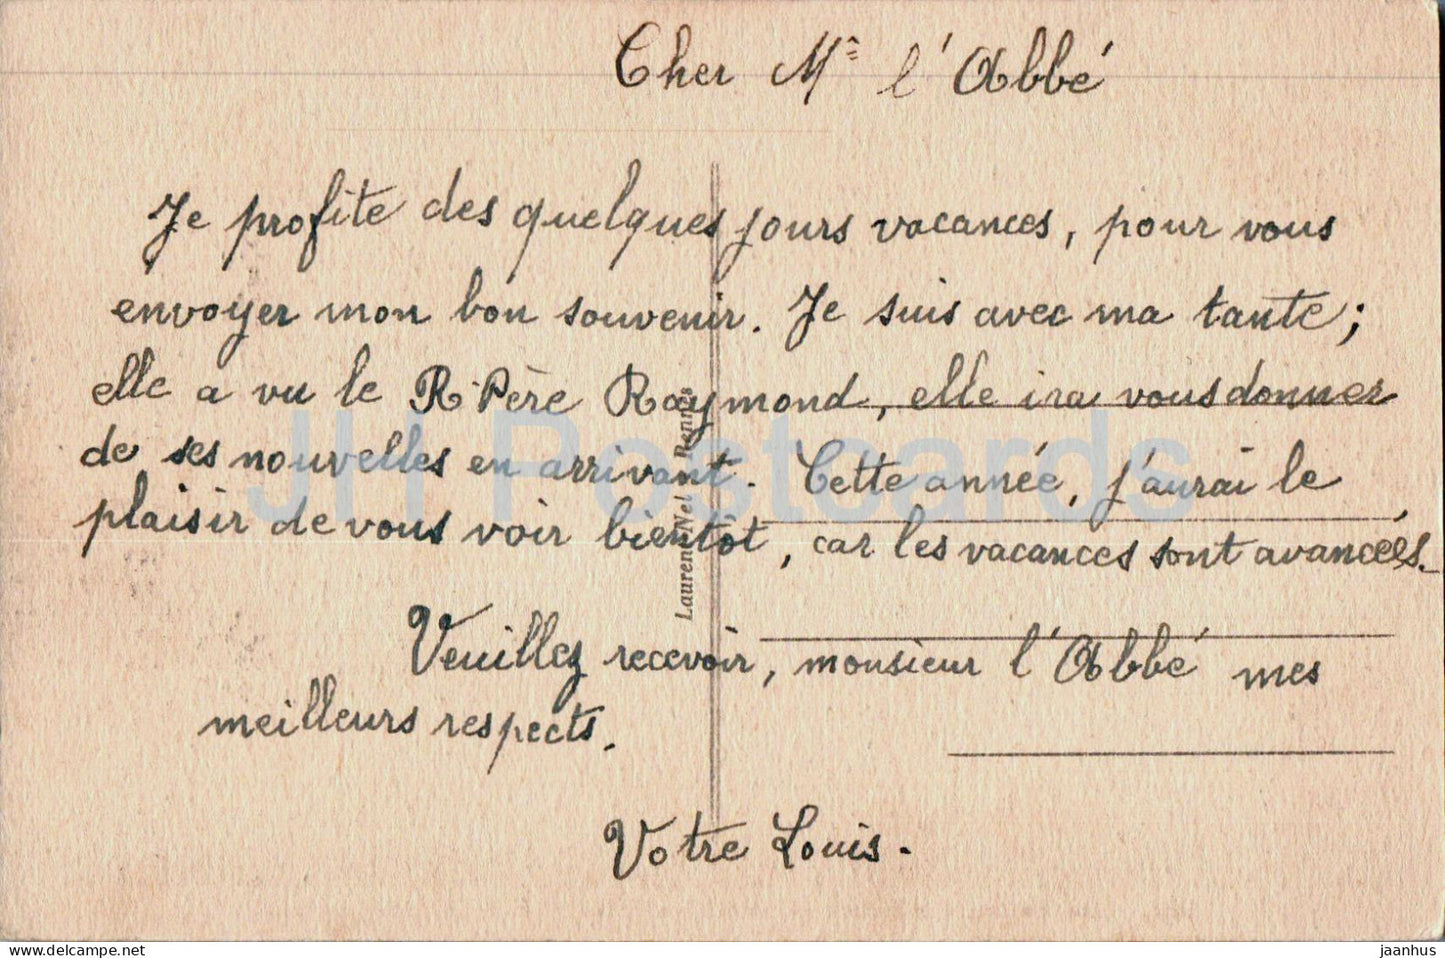 Cher Mr l'Abbé
Je profite des quelques jours vacances, pour vous
envoyer mon bon souvenir. Je suis avec ma tante;
elle a vu le R. Père Raymond, elle ira vous donner
de ses nouvelles en arrivant. Cette année, j'aurai le
plaisir de vous voir bientôt, car les vacances sont avancées.
Veuillez recevoir, monsieur l'Abbé mes
meilleurs respects.
Votre Louis.
Laurent Nel Rennes
JH Postcards
delcampe.net
jaanhus